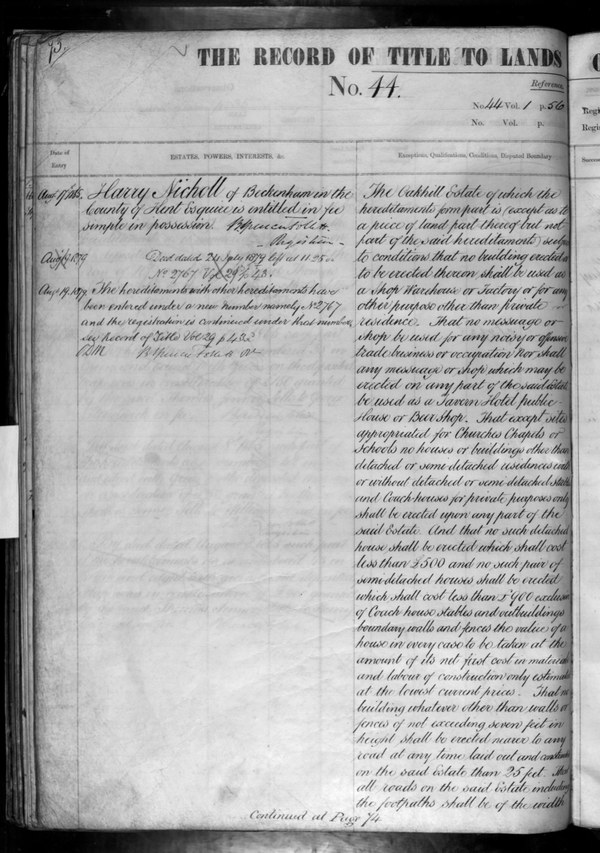 73
THE RECORD OF TITLE TO LANDS
No. 44.
Reference.
No. 44 Vol. 1 p. 56
No. Vol. p.
Date of
Entry
ESTATES, POWERS, INTERESTS, &c.
Exceptions, Qualifications, Conditions, Disputed Boundary
Harry Nicholl of Beckenham in the
County of Kent Esquire is entitled in fee
simple in possession
Registrar
1879
Deed dated 24 July 1879 left at 11.25
No 2767 Vol 29 p 43.
Augt 19. 1879
The hereditaments with other hereditaments have
been entered under a new number namely No 2767
and the registration is continued under that number,
see Record of Title Vol 29 p 43.
The Oakhill Estate of which the
hereditaments form part is (except as to
a piece of land part thereof but not
part of the said hereditaments) subject
to conditions that no building erected or
to be erected thereon shall be used as
a Shop Warehouse or Factory or for any
other purpose other than private
residence. That no messuage or
shop be used for any noisy or offensive
trade business or occupation Nor shall
any messuage or shop which may be
erected on any part of the said Estate
be used as a Tavern Hotel public
House or Beer Shop. That except sites
appropriated for Churches Chapels or
Schools no houses or buildings other than
detached or semi-detached residences with
or without detached or semi-detached stables
and Coach houses for private purposes only
shall be erected upon any part of the
said Estate. And that no such detached
house shall be erected which shall cost
less than £500 and no such pair of
semi-detached houses shall be erected
which shall cost less than £900 exclusive
of Coach house stables and outbuildings
boundary walls and fences the value of a
house in every case to be taken at the
amount of its net first cost in materials
and labour of construction only estimated
at the lowest current prices. That no
building whatever other than walls or
fences of not exceeding seven feet in
height shall be erected nearer to any
road at any time laid out and constructed
on the said Estate than 25 feet. That
all roads on the said Estate including
the footpaths shall be of the width
Continued at Page 74.